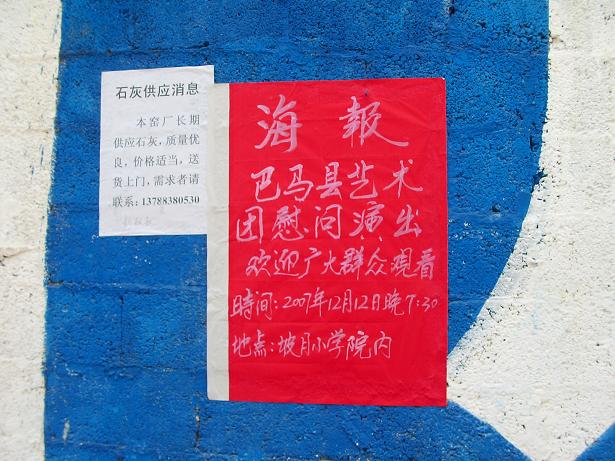 石灰供应消息
本窑厂长期
供应石灰,质量优
良,价格适当,送
货上门,需求者请
联系:13788380530
海報
巴马县艺术
团慰问演出
欢迎广大群众观看
时间:2007年12月12日晚7:30
地点:坡月小学院内